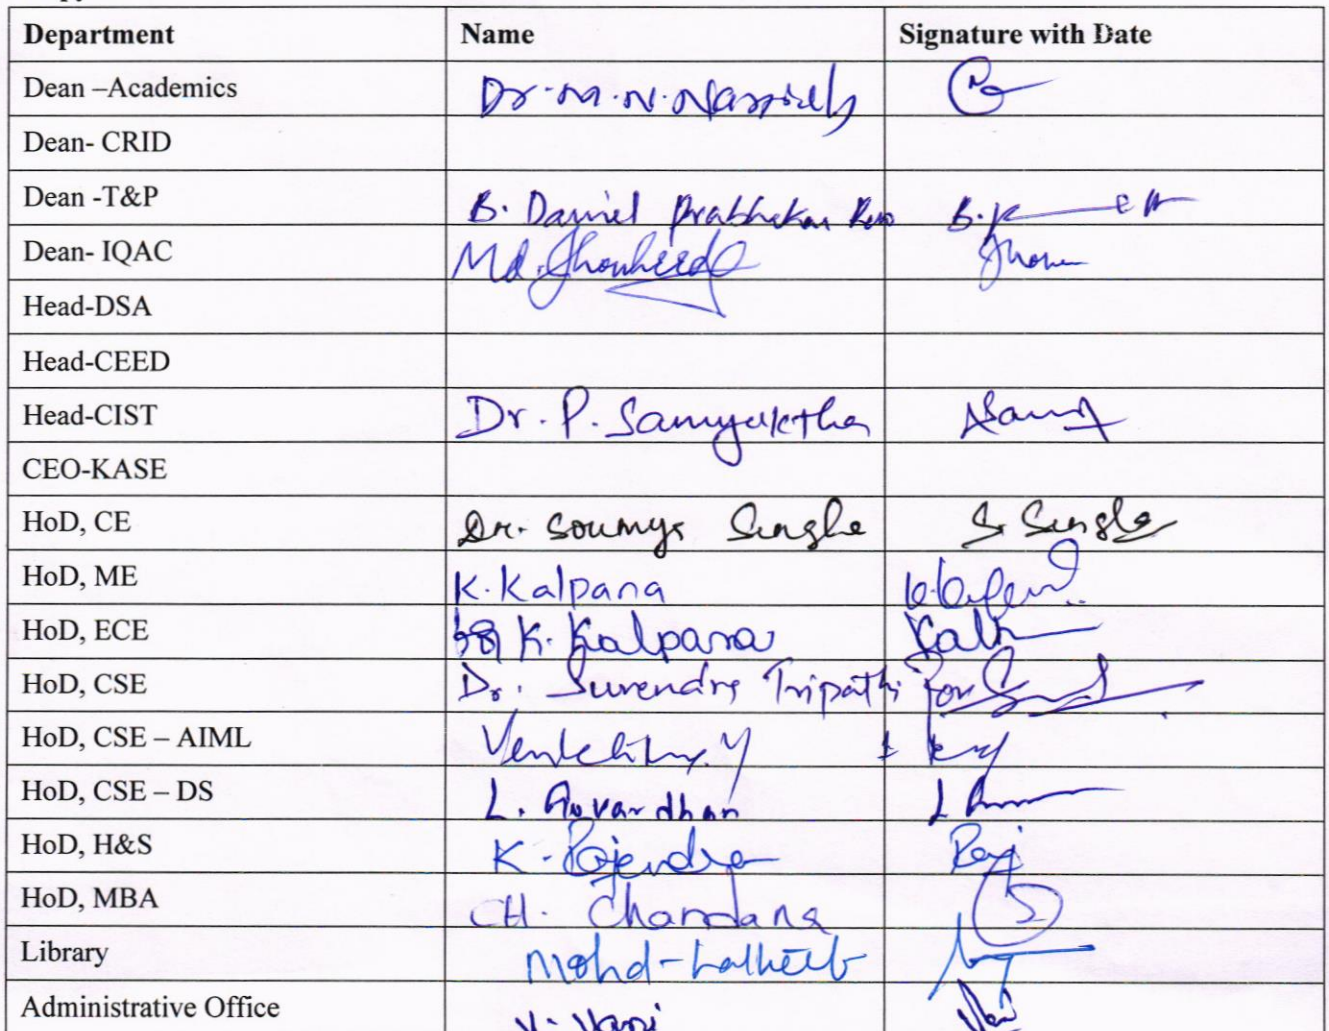 Department Name Signature with Date
Dean –Academics Dr. M. N.
Dean- CRID
Dean -T&P B. Daniel Prabhakar Rao B.
Dean- IQAC Md.
Head-DSA
Head-CEED
Head-CIST Dr. P. Samyuktha
CEO-KASE
HoD, CE Dr. Soumya Singha S. Singha
HoD, ME K. Kalpana
HoD, ECE K. Kalpana
HoD, CSE Dr. Surendra Tripathi for
HoD, CSE – AIML
HoD, CSE – DS L. Govardhan L
HoD, H&S K. Rajendra
HoD, MBA CH. Chandana
Library Mohd-
Administrative Office V. Vani